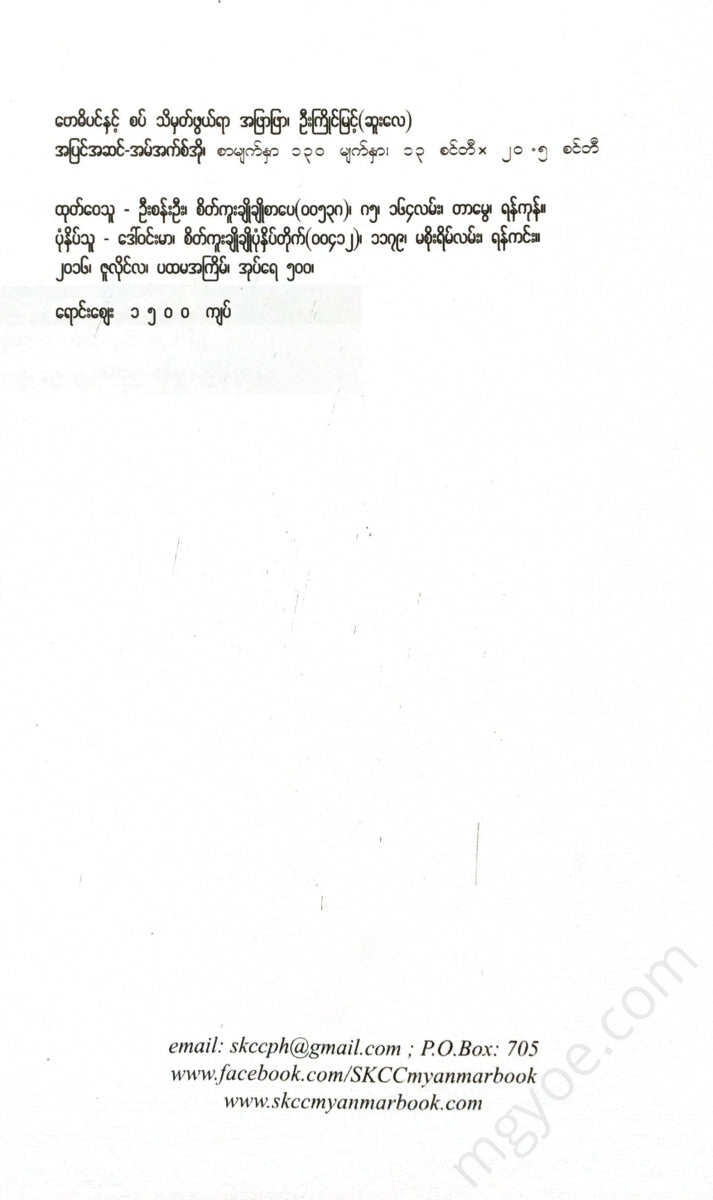 ဗောဓိပင်နှင့် စပ် သိမှတ်ဖွယ်ရာ အဖြာဖြာ၊ ဦးကြိုင်မြင့်(ဆူးလေ)
အပြင်အဆင်-အမ်အက်စ်အို၊ စာမျက်နှာ ၁၃၀ မျက်နှာ၊ ၁၃ စင်တီ× ၂၀.၅ စင်တီ
ထုတ်ဝေသူ - ဦးစန်းဦး၊ စိတ်ကူးချိုချိုစာပေ(၀၀၅၃၈)၊ ဂ၅၊ ၁၆၄လမ်း၊ တာမွေ၊ ရန်ကုန်။
ပုံနှိပ်သူ - ဒေါ်ဝင်းမာ၊ စိတ်ကူးချိုချိုပုံနှိပ်တိုက်(၀၀၄၁၂)၊ ၁၁၇၉၊ မစိုးရိမ်လမ်း၊ ရန်ကင်း။
၂၀၁၆၊ ဇူလိုင်လ၊ ပထမအကြိမ်၊ အုပ်ရေ ၅၀၀၊
ရောင်းဈေး ၁၅၀၀ ကျပ်
email: skccph@gmail.com ; P.O.Box: 705
www.facebook.com/SKCCmyanmarbook
www.skccmyanmarbook.com
mgyoe.com